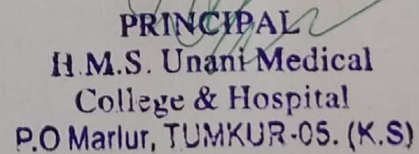 PRINCIPAL
H.M.S. Unani Medical
College & Hospital
P.O Marlur, TUMKUR-05. (K.S)